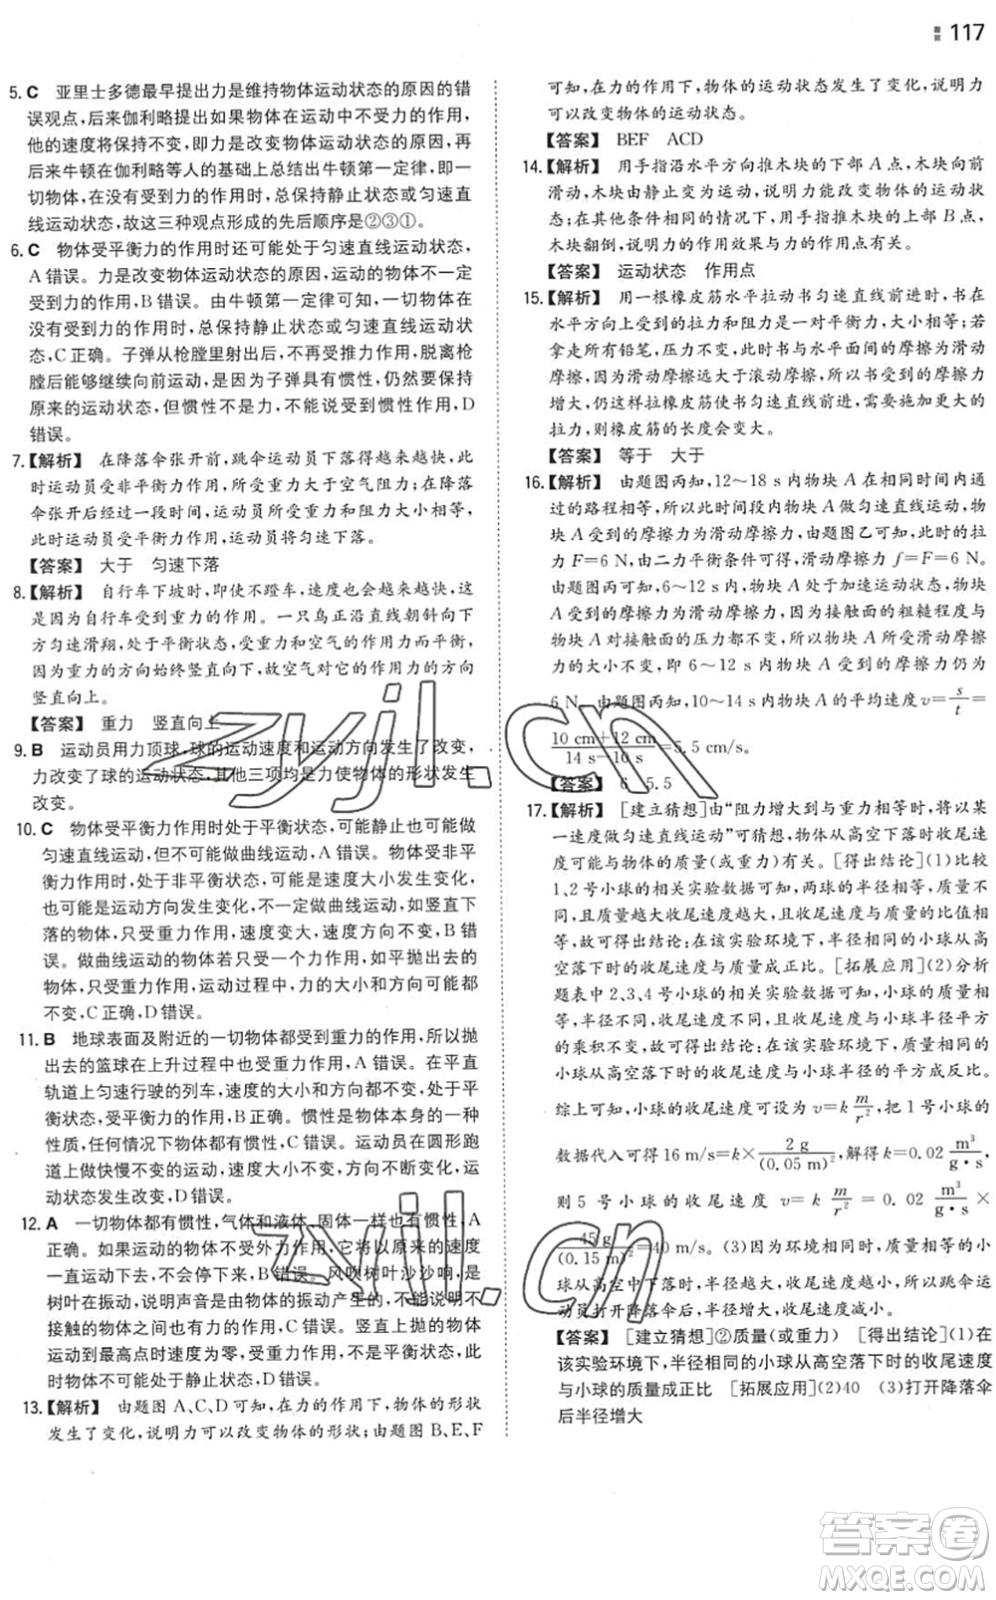 117
5. C 亚里士多德最早提出力是维持物体运动状态的原因的错
误观点,后来伽利略提出如果物体在运动中不受力的作用,
他的速度将保持不变,即力是改变物体运动状态的原因,再
后来牛顿在伽利略等人的基础上总结出牛顿第一定律,即一
切物体,在没有受到力的作用时,总保持静止状态或匀速直
线运动状态,故这三种观点形成的先后顺序是②③①。
6. C 物体受平衡力的作用时还可能处于匀速直线运动状态,
A 错误。力是改变物体运动状态的原因,运动的物体不一定
受到力的作用,B 错误。由牛顿第一定律可知,一切物体在
没有受到力的作用时,总保持静止状态或匀速直线运动状
态,C 正确。子弹从枪膛里射出后,不再受推力作用,脱离枪
膛后能够继续向前运动,是由于子弹具有惯性,仍然要保持
原来的运动状态,但惯性不是力,不能说受到惯性作用,D
错误。
7.【解析】 在降落伞张开前,跳伞运动员下落得越来越快,此
时运动员受非平衡力作用,所受重力大于空气阻力;在降落
伞张开后经过一段时间,运动员所受重力和阻力大小相等,
此时运动员受平衡力作用,运动员将匀速下落。
【答案】 大于 匀速下落
8.【解析】 自行车下坡时,即使不蹬车,速度也会越来越快,这
是因为自行车受到重力的作用。一只鸟正沿直线朝斜向下
方匀速滑翔,处于平衡状态,受重力和空气的作用力而平衡,
因为重力的方向始终竖直向下,故空气对它的作用力的方向
竖直向上。
【答案】 重力 竖直向上
9. B 运动员用力顶球,球的运动速度和运动方向发生了改变,
力改变了球的运动状态,其他三项均是力使物体的形状发生
改变。
10. C 物体受平衡力作用时处于平衡状态,可能静止也可能做
匀速直线运动,但不可能做曲线运动,A 错误。物体受非平
衡力作用时,处于非平衡状态,可能是速度大小发生变化,
也可能是运动方向发生变化,不一定做曲线运动,如竖直下
落的物体,只受重力作用,速度变大,速度方向不变,B 错
误。做曲线运动的物体若只受一个力作用,如平抛出去的
物体,只受重力作用,运动过程中,力的大小和方向可能均
不变,C 正确,D 错误。
11. B 地球表面及附近的一切物体都受到重力的作用,所以抛
出去的篮球在上升过程中也受重力作用,A 错误。在平直
轨道上匀速行驶的列车,速度的大小和方向都不变,处于平
衡状态,受平衡力的作用,B 正确。惯性是物体本身的一种
性质,任何情况下物体都有惯性,C 错误。运动员在圆形跑
道上做快慢不变的运动,速度大小不变,方向不断变化,运
动状态发生改变,D 错误。
12. A 一切物体都有惯性,气体和液体、固体一样也有惯性,A
正确。如果运动的物体不受外力作用,它将以原来的速度
一直运动下去,不会停下来,B 错误。风吹树叶沙沙响,是
树叶在振动,说明声音是由物体的振动产生的,不能说明不
接触的物体之间也有力的作用,C 错误。竖直上抛的物体
运动到最高点时速度为零,但其受力不平衡,不能保持静止,
此时物体不可能处于静止状态,D 错误。
13.【解析】 由题图 A、C、D 可知,在力的作用下,物体的形状
发生了变化,说明力可以改变物体的形状;由题图 B、E、F
可知,在力的作用下,物体的运动状态发生了变化,说明力
可以改变物体的运动状态。
【答案】 BEF ACD
14.【解析】 用手指沿水平方向推木块的下部 A 点,木块向前
滑动,木块由静止变为运动,说明力能改变物体的运动状
态;在其他条件相同的情况下,用手指推木块的上部 B 点,
木块翻倒,说明力的作用效果与力的作用点有关。
【答案】 运动状态 作用点
15.【解析】 用一根橡皮筋水平拉动书匀速直线前进时,书在
水平方向上受到的拉力和阻力是一对平衡力,大小相等;若
拿走所有铅笔,压力不变,此时书与水平面间的摩擦为滑动
摩擦,因为滑动摩擦远大于滚动摩擦,所以书受到的摩擦力
增大,仍这样拉橡皮筋使书匀速直线前进,需要施加更大的
拉力,则橡皮筋的长度会变大。
【答案】 等于 大于
16.【解析】 由题图丙知,12～18 s 内物块 A 在相同时间内通
过的路程相等,所以此时间内物块 A 做匀速直线运动,物
块 A 受到的摩擦力为滑动摩擦力,由题图乙可知,此时拉
力 F=6 N,由二力平衡条件可得,滑动摩擦力 f=F=6 N。
由题图丙可知,6～12 s 内,物块 A 处于加速运动状态,物块
A 受到的摩擦力为滑动摩擦力,因为接触面的粗糙程度与
物块 A 对接触面的压力都不变,所以物块 A 所受滑动摩擦
力的大小不变,即 6～12 s 内,物块 A 受到的摩擦力仍为
6 N。由题图丙知,10～14 s 内物块 A 的平均速度 v=s/t=
(10 cm+12 cm)/(14 s-10 s)=5.5 cm/s。
【答案】 6 5.5
17.【解析】 [建立猜想]由“阻力增大到与重力相等时,将以某
一速度做匀速直线运动”可猜想,物体从高空下落时收尾速
度可能与物体的质量(或重力)有关。[得出结论](1)比较
1、2 号小球的相关实验数据可知,两球的半径相等,质量不
同,且质量越大收尾速度越大,且收尾速度与质量的比值相
等,故可得出结论:在该实验环境下,半径相同的小球从高
空落下时的收尾速度与质量成正比。[拓展应用](2)分析
题表中 2、3、4 号小球的相关实验数据可知,小球的质量相
同,半径不同,收尾速度不同,且收尾速度与小球半径平方
的乘积不变,故可得出结论:在该实验环境下,质量相同的
小球从高空落下时的收尾速度与小球半径的平方成反比。
综上可知,小球的收尾速度可设为 v=k m/r²,把 1 号小球的
数据代入可得 16 m/s=k×2 g/(0.05 m)²,解得 k=0.02 m³/(g·s),
则 5 号小球的收尾速度 v=k m/r²=0.02 m³/(g·s)×
45 g/(0.15 m)²=40 m/s。(3)因为环境相同时,质量相等的小
球从高空中下落时,半径越大,收尾速度越小,所以跳伞运
动员打开降落伞后,半径增大,收尾速度减小。
【答案】 [建立猜想]②质量(或重力) [得出结论](1)在
该实验环境下,半径相同的小球从高空落下时的收尾速度
与小球的质量成正比 [拓展应用](2)40 (3)打开降落伞
后半径增大
zyjl.cn
zyjl.cn
答案圈
MXQE.COM